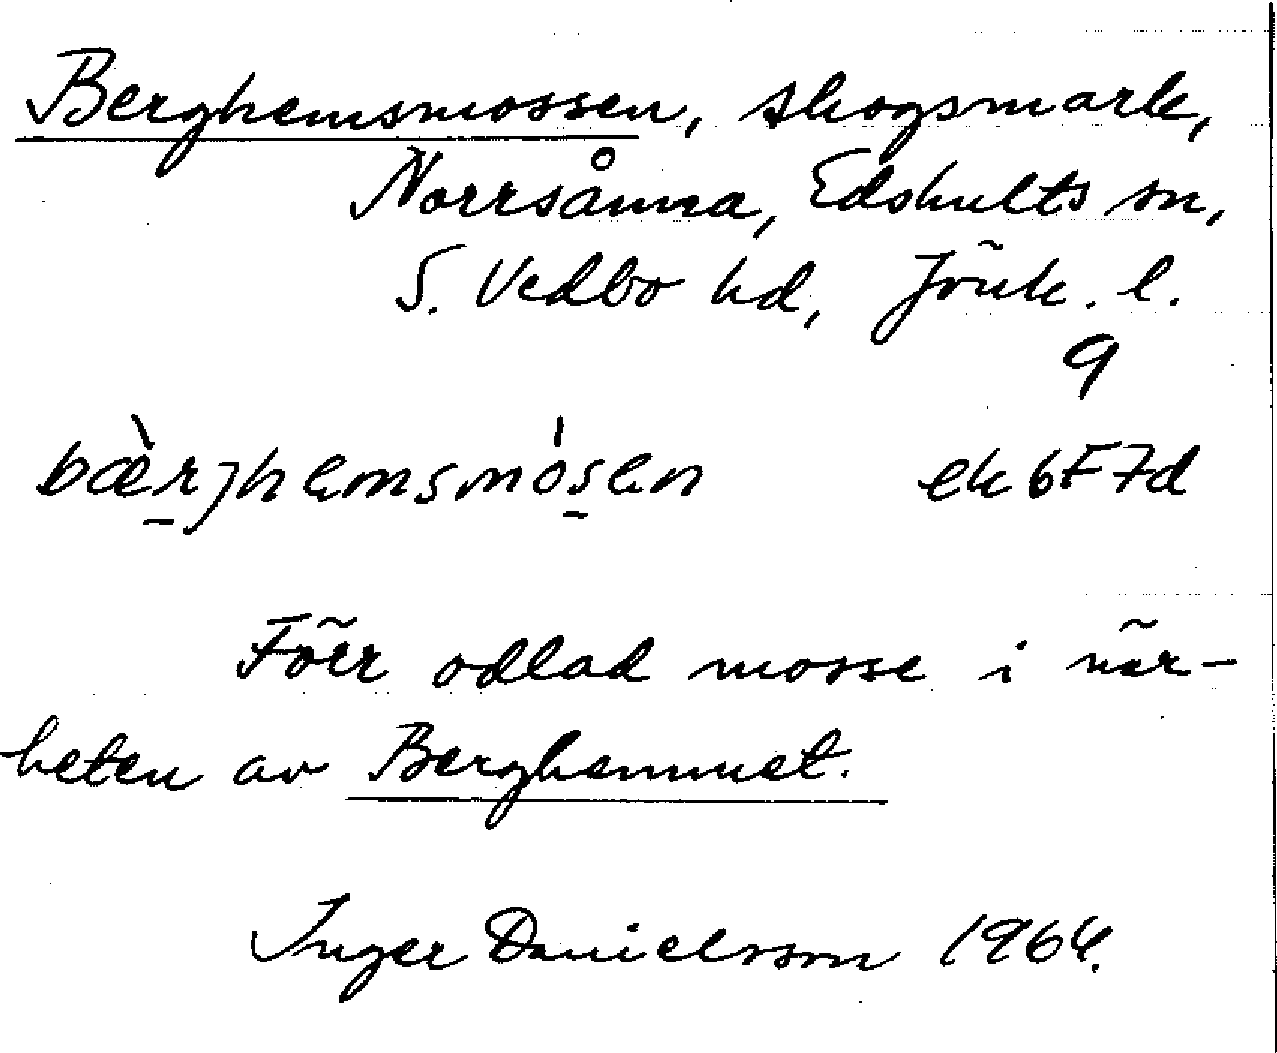 Berghemsmossen, skogsmark,
Norrsånna, Edshults sn,
S. Vedbo hd, Jönk. l.
9
bæ̀r̠jhemsmós̠en ek 6F7d
Förr odlad mosse i när-
heten av Berghemmet.
Inger Danielsson 1964.